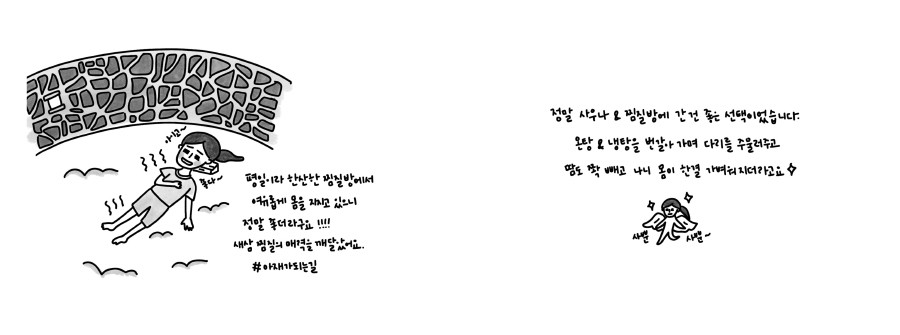 아이고~
좋다~
평일이라 한산한 찜질방에서
여유롭게 몸을 지지고 있으니
정말 좋더라구요 !!!!
새삼 찜질의 매력을 깨달았어요.
#아재가되는길
정말 사우나 & 찜질방에 간 건 좋은 선택이었습니다.
온탕 & 냉탕을 번갈아 가며 다리를 주물러주고
땀도 쫙 빼고 나니 몸이 한결 가벼워지더라고요
사뿐
사뿐~